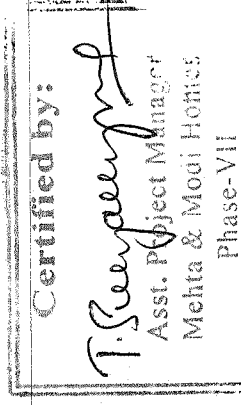 Certified by:
T.
Asst. Project Manager
Mehta & Modi Homes
Phase-VIII